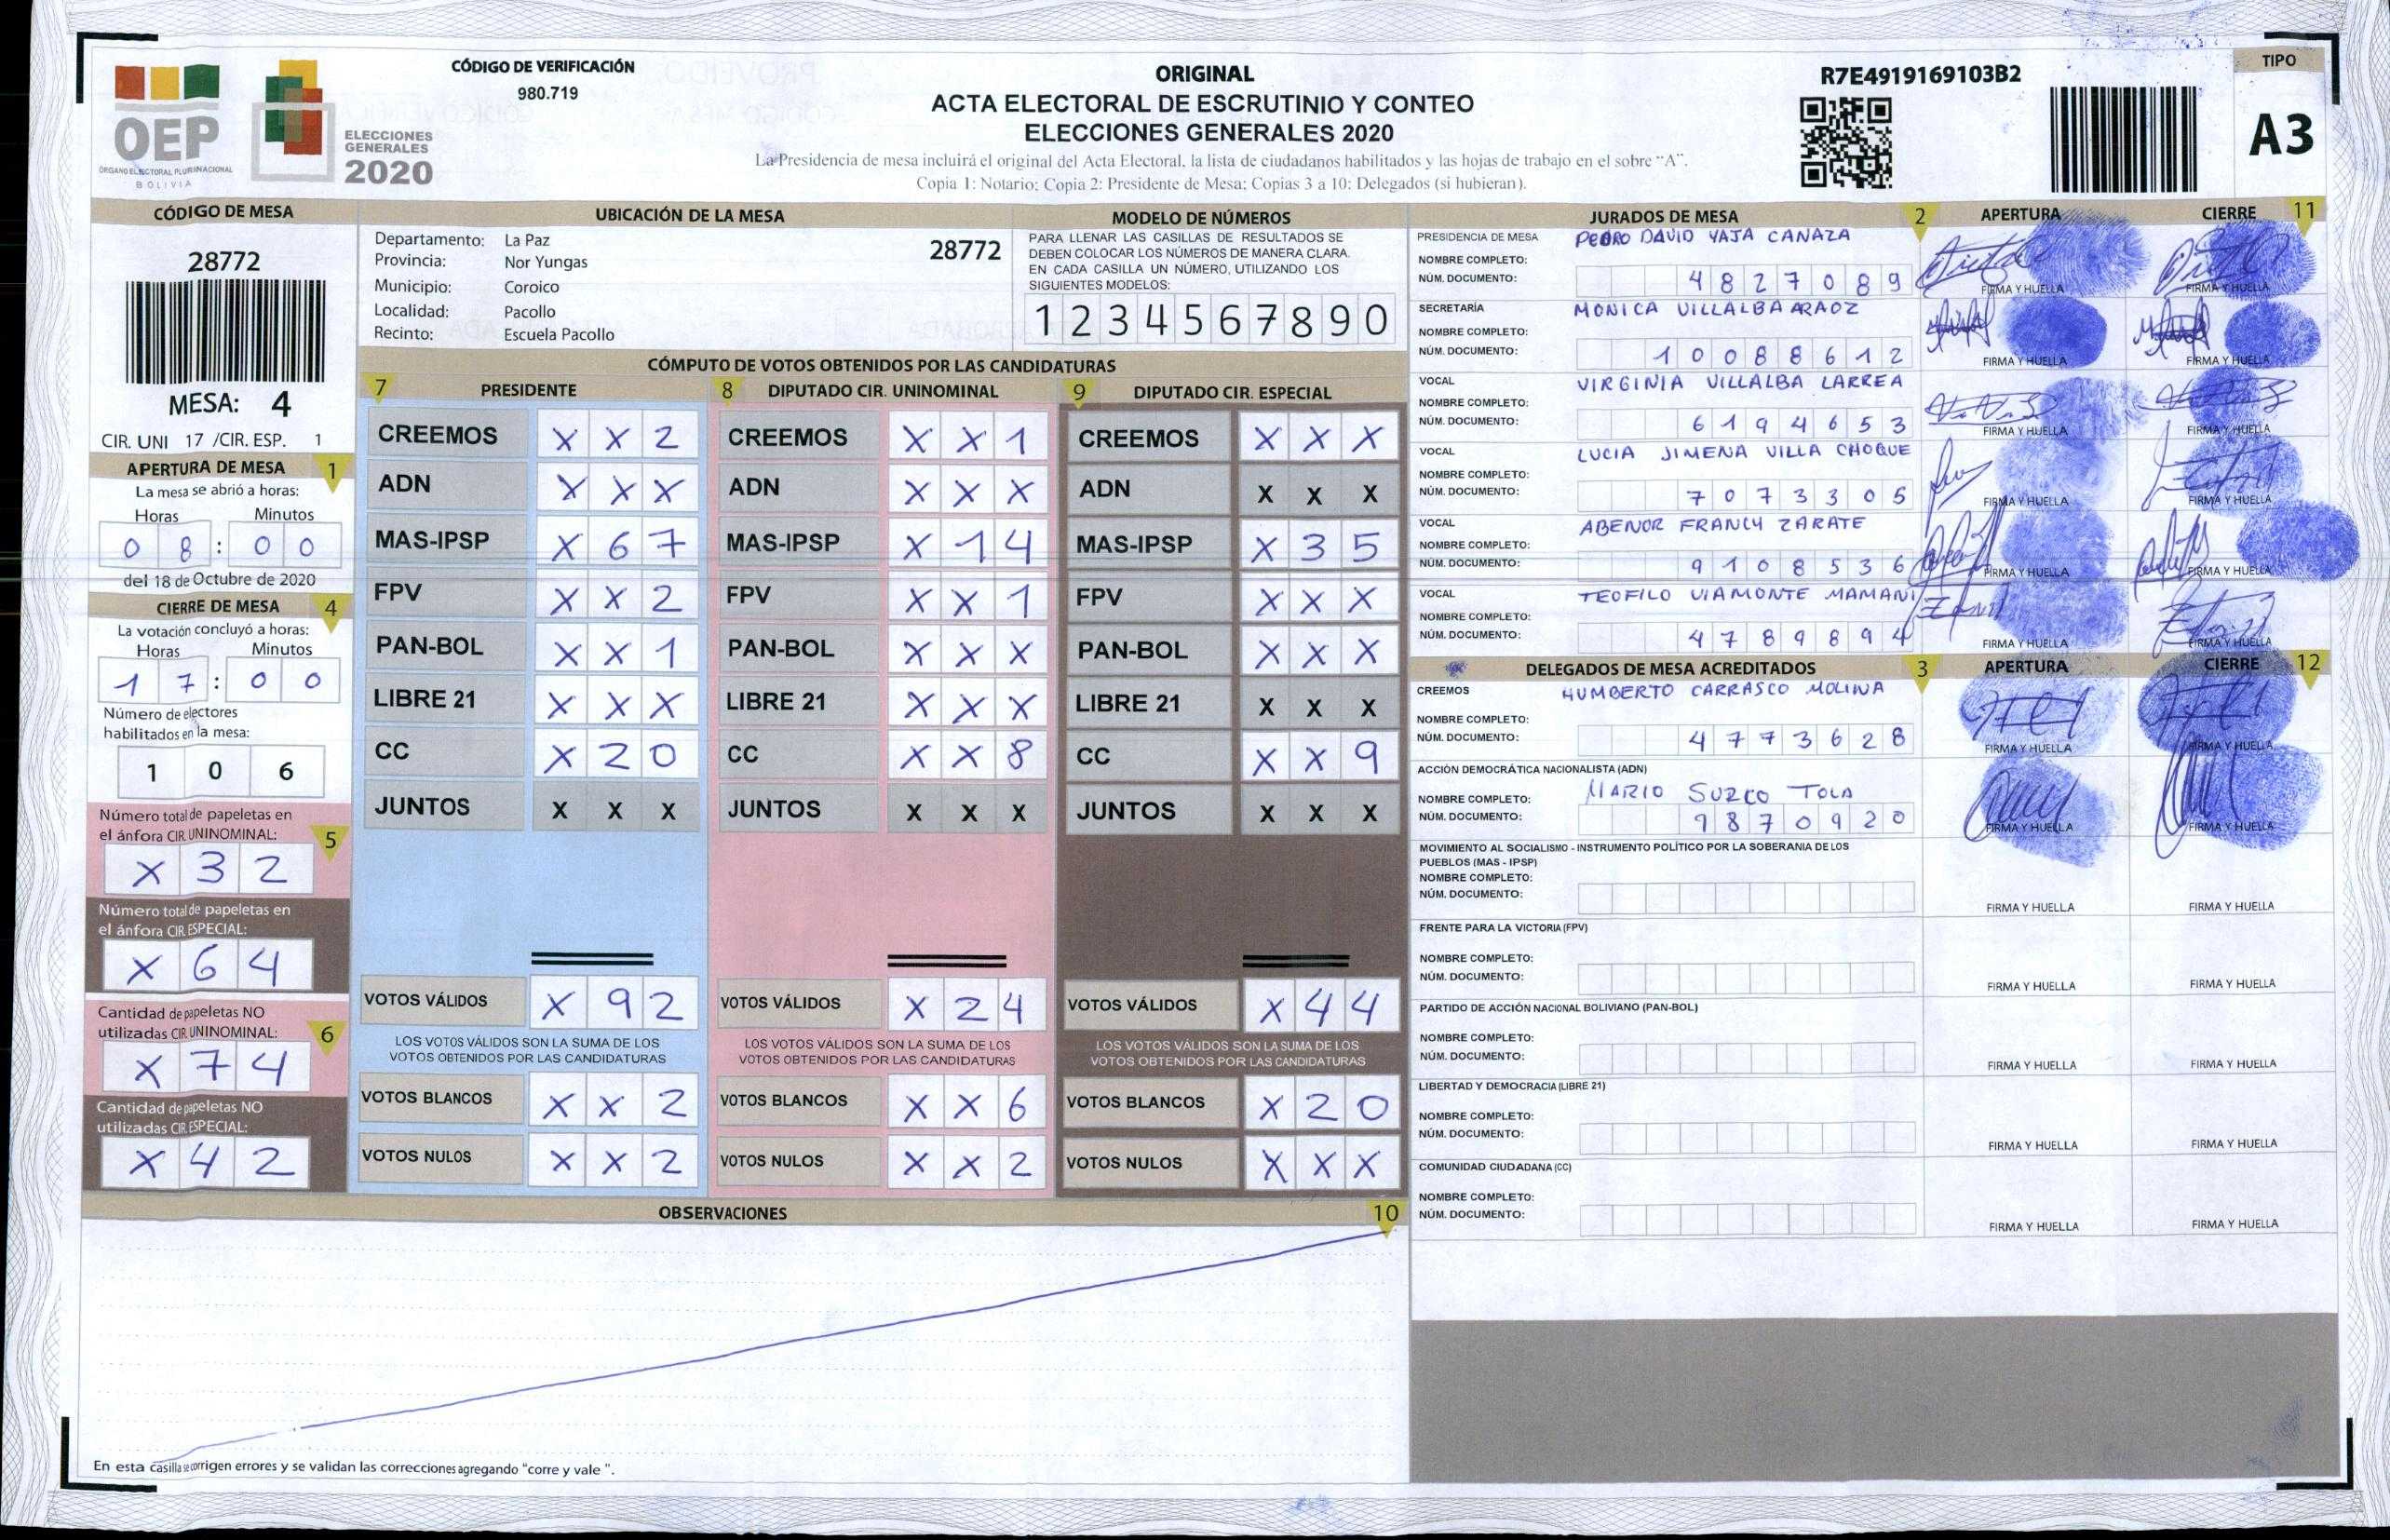 OEP
ÓRGANO ELECTORAL PLURINACIONAL
BOLIVIA
ELECCIONES
GENERALES
2020
CÓDIGO DE VERIFICACIÓN
980.719
ORIGINAL
ACTA ELECTORAL DE ESCRUTINIO Y CONTEO
ELECCIONES GENERALES 2020
La Presidencia de mesa incluirá el original del Acta Electoral, la lista de ciudadanos habilitados y las hojas de trabajo en el sobre “A”.
Copia 1: Notario; Copia 2: Presidente de Mesa; Copias 3 a 10: Delegados (si hubieran).
R7E4919169103B2
TIPO
A3
CÓDIGO DE MESA
28772
MESA: 4
CIR. UNI 17 /CIR. ESP. 1
APERTURA DE MESA 1
La mesa se abrió a horas:
Horas Minutos
0 8 : 0 0
del 18 de Octubre de 2020
CIERRE DE MESA 4
La votación concluyó a horas:
Horas Minutos
1 7 : 0 0
Número de electores
habilitados en la mesa:
1 0 6
Número total de papeletas en
el ánfora CIR. UNINOMINAL: 5
X 3 2
Número total de papeletas en
el ánfora CIR. ESPECIAL:
X 6 4
Cantidad de papeletas NO
utilizadas CIR. UNINOMINAL: 6
X 7 4
Cantidad de papeletas NO
utilizadas CIR. ESPECIAL:
X 4 2
UBICACIÓN DE LA MESA
Departamento: La Paz 28772
Provincia: Nor Yungas
Municipio: Coroico
Localidad: Pacollo
Recinto: Escuela Pacollo
MODELO DE NÚMEROS
PARA LLENAR LAS CASILLAS DE RESULTADOS SE
DEBEN COLOCAR LOS NÚMEROS DE MANERA CLARA.
EN CADA CASILLA UN NÚMERO, UTILIZANDO LOS
SIGUIENTES MODELOS:
1 2 3 4 5 6 7 8 9 0
CÓMPUTO DE VOTOS OBTENIDOS POR LAS CANDIDATURAS
7 PRESIDENTE
CREEMOS X X 2
ADN X X X
MAS-IPSP X 6 7
FPV X X 2
PAN-BOL X X 1
LIBRE 21 X X X
CC X 2 0
JUNTOS X X X
VOTOS VÁLIDOS X 9 2
LOS VOTOS VÁLIDOS SON LA SUMA DE LOS
VOTOS OBTENIDOS POR LAS CANDIDATURAS
VOTOS BLANCOS X X 2
VOTOS NULOS X X 2
8 DIPUTADO CIR. UNINOMINAL
CREEMOS X X 1
ADN X X X
MAS-IPSP X 1 4
FPV X X 1
PAN-BOL X X X
LIBRE 21 X X X
CC X X 8
JUNTOS X X X
VOTOS VÁLIDOS X 2 4
LOS VOTOS VÁLIDOS SON LA SUMA DE LOS
VOTOS OBTENIDOS POR LAS CANDIDATURAS
VOTOS BLANCOS X X 6
VOTOS NULOS X X 2
9 DIPUTADO CIR. ESPECIAL
CREEMOS X X X
ADN X X X
MAS-IPSP X 3 5
FPV X X X
PAN-BOL X X X
LIBRE 21 X X X
CC X X 9
JUNTOS X X X
VOTOS VÁLIDOS X 4 4
LOS VOTOS VÁLIDOS SON LA SUMA DE LOS
VOTOS OBTENIDOS POR LAS CANDIDATURAS
VOTOS BLANCOS X 2 0
VOTOS NULOS X X X
OBSERVACIONES 10
En esta casilla se corrigen errores y se validan las correcciones agregando “corre y vale ”.
JURADOS DE MESA 2 APERTURA CIERRE 11
PRESIDENCIA DE MESA PEDRO DAVID YAJA CANAZA
NOMBRE COMPLETO:
NÚM. DOCUMENTO: 4 8 2 7 0 8 9
FIRMA Y HUELLA FIRMA Y HUELLA
SECRETARÍA MONICA VILLALBA ARAOZ
NOMBRE COMPLETO:
NÚM. DOCUMENTO: 1 0 0 8 8 6 1 2
FIRMA Y HUELLA FIRMA Y HUELLA
VOCAL VIRGINIA VILLALBA LARREA
NOMBRE COMPLETO:
NÚM. DOCUMENTO: 6 1 9 4 6 5 3
FIRMA Y HUELLA FIRMA Y HUELLA
VOCAL LUCIA JIMENA VILLA CHOQUE
NOMBRE COMPLETO:
NÚM. DOCUMENTO: 7 0 7 3 3 0 5
FIRMA Y HUELLA FIRMA Y HUELLA
VOCAL ABENOR FRANCY ZARATE
NOMBRE COMPLETO:
NÚM. DOCUMENTO: 9 1 0 8 5 3 6
FIRMA Y HUELLA FIRMA Y HUELLA
VOCAL TEOFILO VIAMONTE MAMANI
NOMBRE COMPLETO:
NÚM. DOCUMENTO: 4 7 8 9 8 9 4
FIRMA Y HUELLA FIRMA Y HUELLA
DELEGADOS DE MESA ACREDITADOS 3 APERTURA CIERRE 12
CREEMOS HUMBERTO CARRASCO MOLINA
NOMBRE COMPLETO:
NÚM. DOCUMENTO: 4 7 7 3 6 2 8
FIRMA Y HUELLA FIRMA Y HUELLA
ACCIÓN DEMOCRÁTICA NACIONALISTA (ADN)
NOMBRE COMPLETO: MARIO SUZCO TOLA
NÚM. DOCUMENTO: 9 8 7 0 9 2 0
FIRMA Y HUELLA FIRMA Y HUELLA
MOVIMIENTO AL SOCIALISMO - INSTRUMENTO POLÍTICO POR LA SOBERANIA DE LOS
PUEBLOS (MAS - IPSP)
NOMBRE COMPLETO:
NÚM. DOCUMENTO:
FIRMA Y HUELLA FIRMA Y HUELLA
FRENTE PARA LA VICTORIA (FPV)
NOMBRE COMPLETO:
NÚM. DOCUMENTO:
FIRMA Y HUELLA FIRMA Y HUELLA
PARTIDO DE ACCIÓN NACIONAL BOLIVIANO (PAN-BOL)
NOMBRE COMPLETO:
NÚM. DOCUMENTO:
FIRMA Y HUELLA FIRMA Y HUELLA
LIBERTAD Y DEMOCRACIA (LIBRE 21)
NOMBRE COMPLETO:
NÚM. DOCUMENTO:
FIRMA Y HUELLA FIRMA Y HUELLA
COMUNIDAD CIUDADANA (CC)
NOMBRE COMPLETO:
NÚM. DOCUMENTO:
FIRMA Y HUELLA FIRMA Y HUELLA